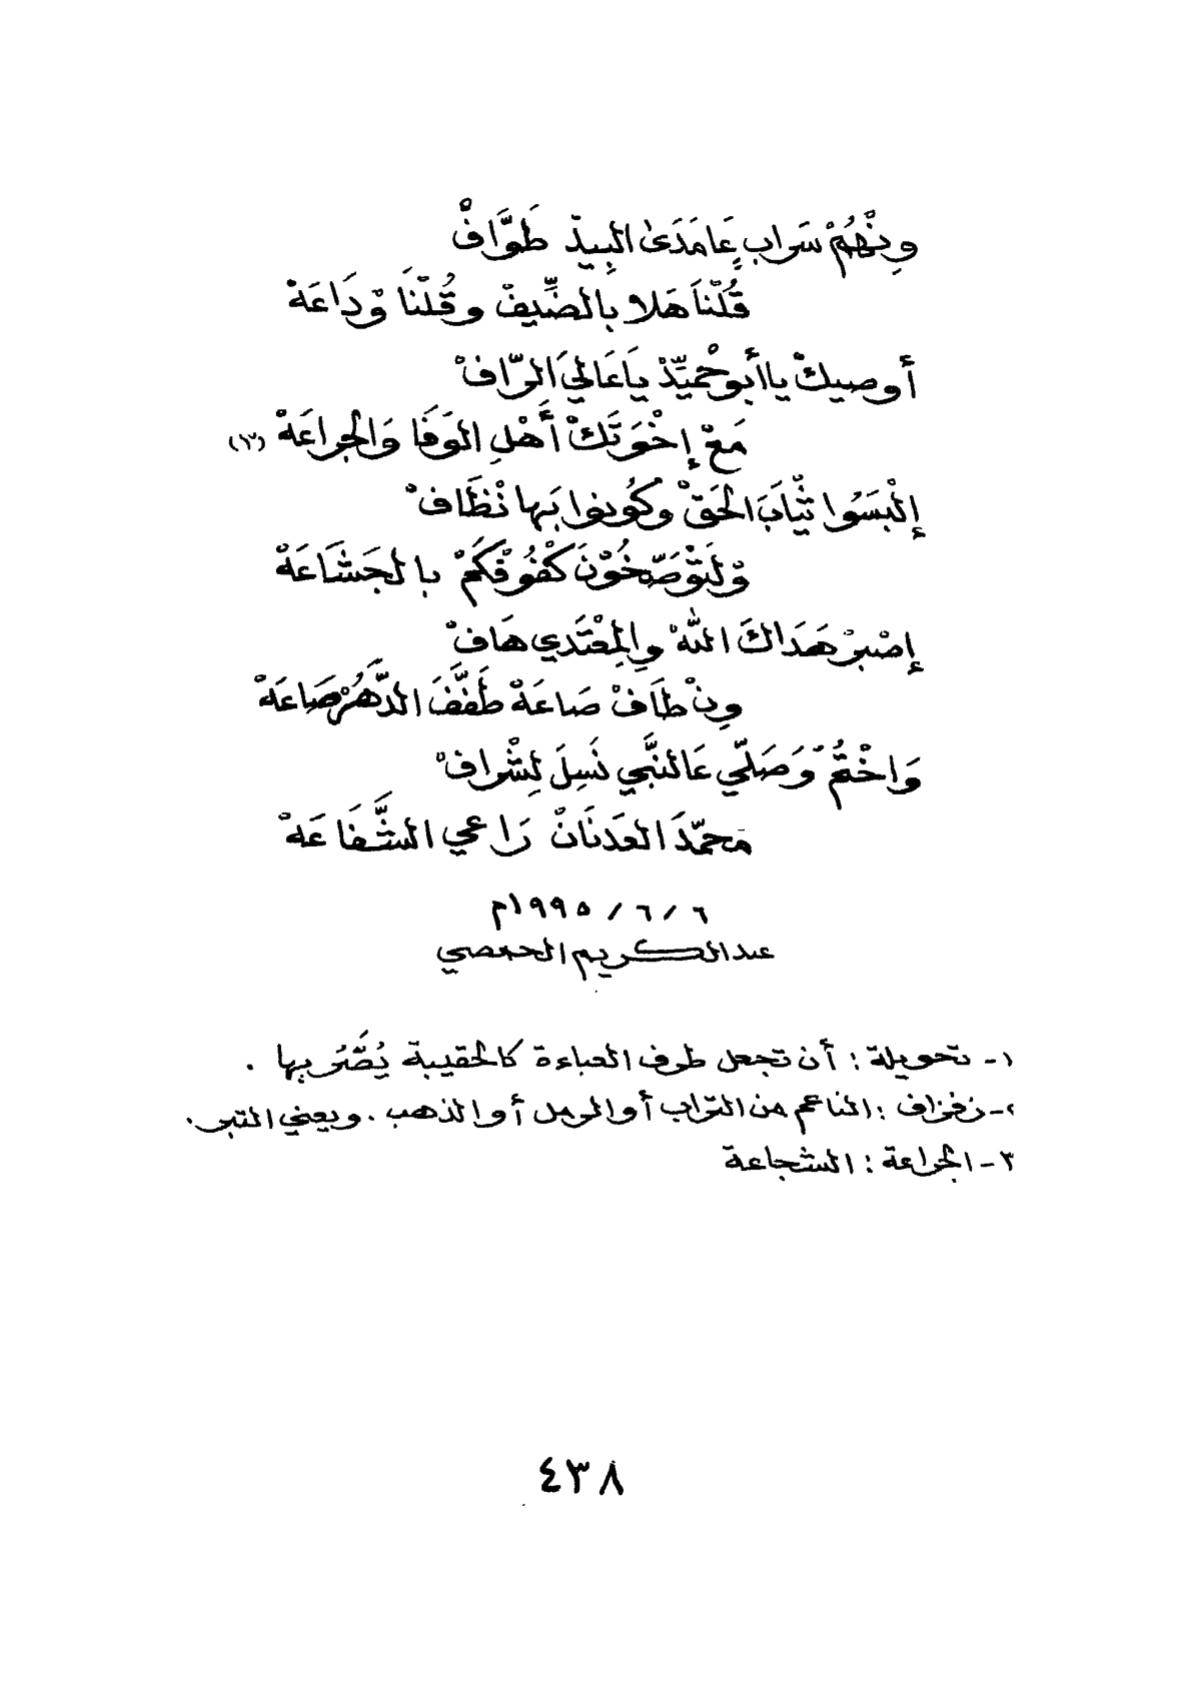 وِنْهُمْ سَراب عَامَدَىٰ البِيدْ طَوَّافْ
قُلْنَا هَلا بِالضِّيفْ وقُلْنَا وْدَاعَهْ
أوصيكْ ياأبوحْمَيِّدْ يَاعَالِيَ الرَّافْ
مَعْ إخْوَتَكْ أَهْلِ الوَفَا وَالجراعَهْ (٣)
إلْبَسُوا ثْيَابَ الحَقْ وكُونوا بَها نْظَافْ
وْلَتْوَصّخُوْنَ كْفُوْفَكَمْ بالجَشَاعَهْ
إصْبِرْ هَدَاكَ اللهْ وِالمِعْتَدي هَافْ
وِنْ طَافْ صَاعَهْ طَفَّفَ الدَّهَرْ صَاعَهْ
وَاخْتُمْ وَصَلّي عَالنبَّي نَسِلَ لِشْرافْ
مَحمّدَ العَدنَانْ رَاعي الشَّفَاعَهْ
٦ / ٦ / ١٩٩٥م
عبدالكريم الحمصي
١- تحويلة : أن تجعل طرف العباءة كالحقيبة يُصَّرُ بها .
٢- زغزاف : الناعم من التراب أو الرمل أو الذهب . ويعني التبر .
٣- الجراعة : الشجاعة
٤٣٨